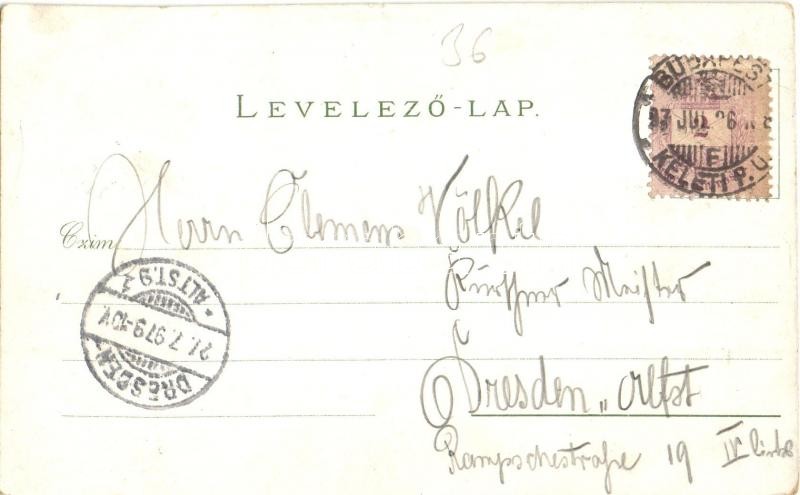 36
BUDAPEST
97 JUL 26
2
F
KELETI P.U.
LEVELEZŐ-LAP.
Czim Herrn Clemens Völkel
Kürschner Meister
Dresden „Altst
Rampschestraße 19 IV links
DRESDEN
27.7.97 9-10V
* ALTST. 9 z